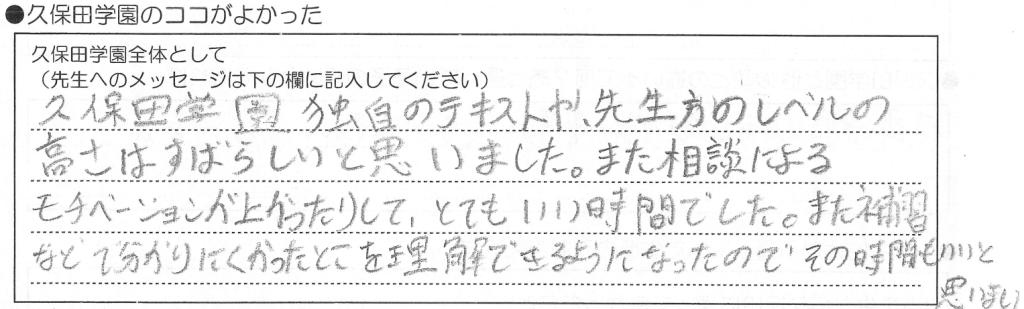 ●久保田学園のココがよかった
久保田学園全体として
（先生へのメッセージは下の欄に記入してください）
久保田学園独自のテキストや、先生方のレベルの
高さはすばらしいと思いました。また相談による
モチベーションが上がったりして、とてもいい時間でした。また補習
などで分かりにくかったとこを理解できるようになったのでその時間もいいと
思いまし